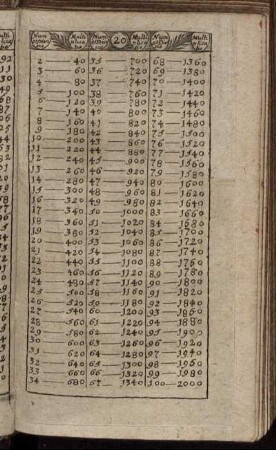 20
2—40 35—700 68—1360
3—60 36—720 69—1380
4—80 37—740 70—1400
5—100 38—760 71—1420
6—120 39—780 72—1440
7—140 40—800 73—1460
8—160 41—820 74—1480
9—180 42—840 75—1500
10—200 43—860 76—1520
11—220 44—880 77—1540
12—240 45—900 78—1560
13—260 46—920 79—1580
14—280 47—940 80—1600
15—300 48—960 81—1620
16—320 49—980 82—1640
17—340 50—1000 83—1660
18—360 51—1020 84—1680
19—380 52—1040 85—1700
20—400 53—1060 86—1720
21—420 54—1080 87—1740
22—440 55—1100 88—1760
23—460 56—1120 89—1780
24—480 57—1140 90—1800
25—500 58—1160 91—1820
26—520 59—1180 92—1840
27—540 60—1200 93—1860
28—560 61—1220 94—1880
29—580 62—1240 95—1900
30—600 63—1260 96—1920
31—620 64—1280 97—1940
32—640 65—1300 98—1960
33—660 66—1320 99—1980
34—680 67—1340 100—2000